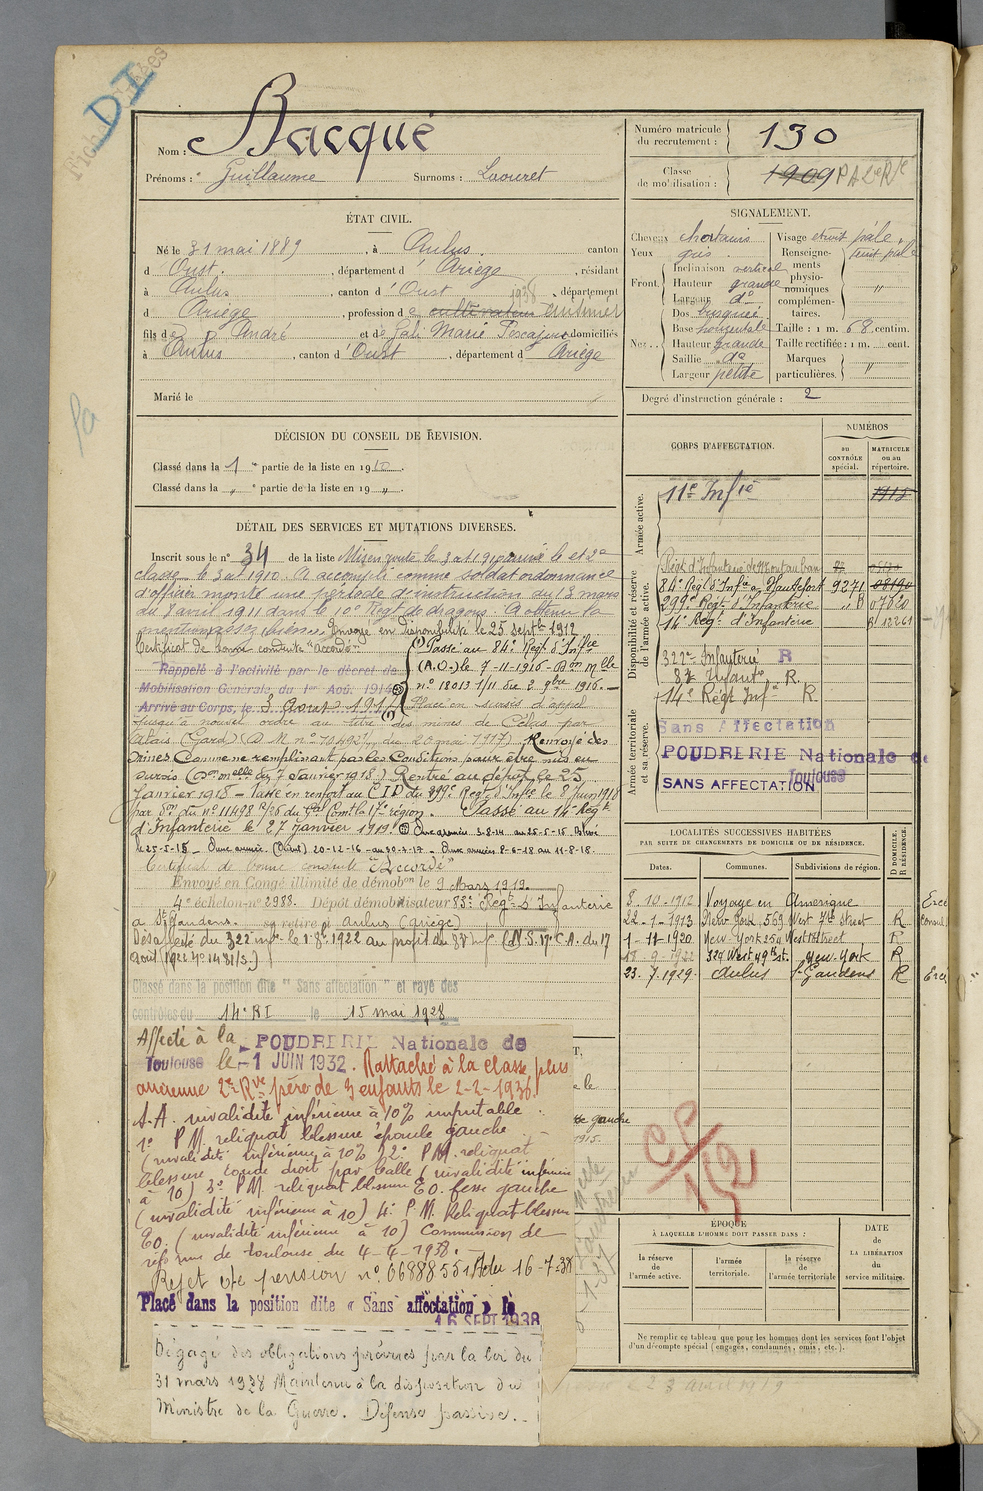 DI
Nom : Bacqué
Prénoms : Guillaume Surnoms : Laouret
Numéro matricule du recrutement : 130
Classe de mobilisation : 1909 PAL 2e R
ÉTAT CIVIL.
Né le 31 mai 1889, à Aulus. canton
d'Oust., département d'Ariège, résidant
à Aulus, canton d'Oust 1938, département
d Ariège, profession de cultivateur cuisinier
fils de André et de Gali Marie Pescajou domiciliés
à Aulus, canton d'Oust, département d'Ariège
Marié le
SIGNALEMENT.
Cheveux châtains
Yeux gris
Front. Inclinaison verticale
Hauteur grande
Largeur do
Nez Dos busqué
Base horizontale
Hauteur grande
Saillie do
Largeur petite
Visage étroit pâle.
Renseignements physionomiques complémentaires. teint pâle
"
Taille : 1 m. 68 centim.
Taille rectifiée : 1 m. cent.
Marques particulières. "
Degré d'instruction générale : 2
DÉCISION DU CONSEIL DE REVISION.
Classé dans la 1e partie de la liste en 1910.
Classé dans la " e partie de la liste en 19 " .
DÉTAIL DES SERVICES ET MUTATIONS DIVERSES.
Inscrit sous le no 34 de la liste Mis en route le 3 oct 1910 arrivé le et 2e
classe le 3 oct 1910. A accompli comme soldat ordonnance
d'officier monté une période d'instruction du 13 mars
du 8 avril 1911 dans le 10e Régt de dragons. A obtenu la
Envoyé en disponibilité le 25 Septbre 1912
Certificat de bonne conduite "accordé"
Rappelé à l'activité par le décret de
Mobilisation Générale du 1er Aoû. 1914
Arrivé au Corps, le 3 Aout 1914
Passé au 84e Régt d'Infie
(A.O.) le 7-11-1916 - Don Mlle
no 18013 1/11 du 2 9bre 1916.
Placé en sursis d'appel
jusqu'à nouvel ordre au titre des mines de Célas par
Alais (Gard) (D M no 70492 du 20 mai 1917) Renvoyé des
mines Comme ne remplissant pas les Conditions pour être mis en
sursis (Don melle du 7 Janvier 1918) Rentré au dépôt le 25
Janvier 1918 - Passé en renfort au C I D du 299e Régt d'Infie le 8 Juin 1918
par Don du no 11498 Passé au 14e Régt
d'Infanterie le 27 Janvier 1919. Aux armées 3-8-14 au 25-5-15 Blessé
le 25-5-15 - Aux armées (Orient) 20-12-16 au 30-3-17 - Aux armées 8-6-18 au 11-8-18.
Certificat de bonne conduite "Accordé"
Envoyé en Congé illimité de démobon le 9 Mars 1919.
4e échelon no 2988. Dépôt démobilisateur 83e Régt d'Infanterie
a St Gaudens. se retire à Aulus (Ariège)
Désaffecté du 322 Inf le 1-8-1922 au profit du 83 Inf (N.S. 17e C.A. du 17
Août 1922 No 1431/S.)
Classé dans la position dite "Sans affectation" et rayé des
contrôles du 14e RI le 15 mai 1928
Affecté à la POUDRERIE Nationale de
Toulouse le -1 JUIN 1932. Rattaché à la classe plus
ancienne 2e Rve père de 3 enfants le 2-2-1936.
S.A. invalidité inférieure à 10% imputable :
1o P.M. reliquat blessure épaule gauche
(invalidité inférieure à 10%) 2o P.M. reliquat
blessure coude droit par balle (invalidité inférieure
à 10) 3o P.M. reliquat blessure E.O. fesse gauche
(invalidité inférieure à 10) 4o P.M. Reliquat blessure
E.O. (invalidité inférieure à 10) Commission de
réforme de toulouse du 4-4-1938.
Rejet de pension no 06988551 du 16-7-38
Placé dans la position dite « Sans affectation » le
16 SEPT 1938
Dégagé des obligations prévues par la loi du
31 mars 1928 Maintenu à la disposition du
Ministre de la Guerre. Défense passive.
CORPS D'AFFECTATION.
NUMÉROS
au CONTRÔLE spécial.
MATRICULE ou au répertoire.
Armée active.
11e Infie 1918
Disponibilité et réserve de l'armée active.
Régt d'Infanterie de Montauban
84e Régt d'Infie Hautefort 9271 08190
299e Régt d'Infanterie " B 07620
14e Régt d'Infanterie R 12261
322e Infanterie R
83e Infant. R.
14e Régt Inf R
Armée territoriale et sa réserve.
Sans Affectation
POUDRERIE Nationale de
Toulouse
SANS AFFECTATION
LOCALITÉS SUCCESSIVES HABITÉES
PAR SUITE DE CHANGEMENTS DE DOMICILE OU DE RÉSIDENCE.
Dates. Communes. Subdivisions de région. D DOMICILE. R RÉSIDENCE.
8-10-1912 Voyage en Amérique
22-1-1913 New York, 569 West 7th Street R
1-11-1920 New-York 254 West Street R
18-9-1922 324 West 49th st. New-York R
23-7-1929 Aulus St Gaudens R
CP/152
ÉPOQUE
À LAQUELLE L'HOMME DOIT PASSER DANS :
la réserve de l'armée active.
l'armée territoriale.
la réserve de l'armée territoriale
DATE DE LA LIBÉRATION du service militaire.
Ne remplir ce tableau que pour les hommes dont les services font l'objet
d'un décompte spécial (engagés, condamnés, omis, etc.).